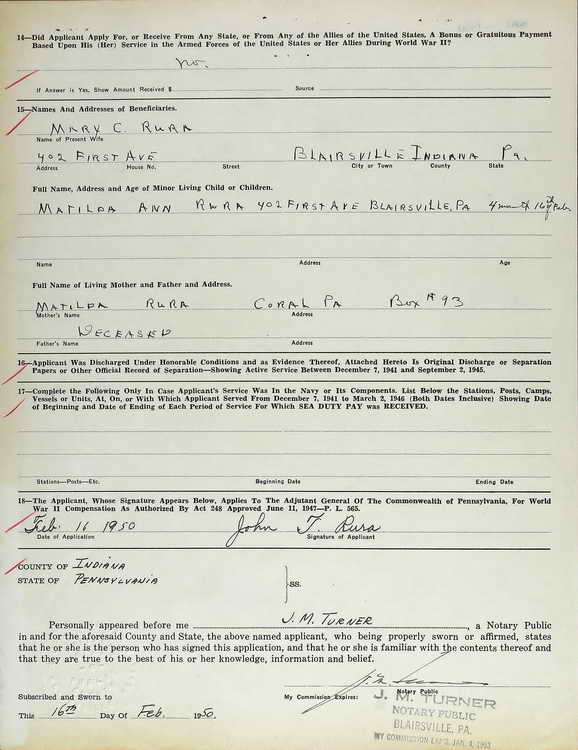 14—Did Applicant Apply For, or Receive From Any State, or From Any of the Allies of the United States, A Bonus or Gratuitous Payment
Based Upon His (Her) Service in the Armed Forces of the United States or Her Allies During World War II?
No.
If Answer is Yes, Show Amount Received $ Source
15—Names And Addresses of Beneficiaries.
MARY C. RURA
Name of Present Wife
402 FIRST AVE BLAIRSVILLE INDIANA PA.
Address House No. Street City or Town County State
Full Name, Address and Age of Minor Living Child or Children.
MATILDA ANN RURA 402 FIRST AVE BLAIRSVILLE, PA 4 16th Feb.
Name Address Age
Full Name of Living Mother and Father and Address.
MATILDA RURA CORAL PA Box # 93
Mother's Name Address
DECEASED
Father's Name Address
16—Applicant Was Discharged Under Honorable Conditions and as Evidence Thereof, Attached Hereto Is Original Discharge or Separation
Papers or Other Official Record of Separation—Showing Active Service Between December 7, 1941 and September 2, 1945.
17—Complete the Following Only In Case Applicant's Service Was In the Navy or Its Components. List Below the Stations, Posts, Camps,
Vessels or Units, At, On, or With Which Applicant Served From December 7, 1941 to March 2, 1946 (Both Dates Inclusive) Showing Date
of Beginning and Date of Ending of Each Period of Service For Which SEA DUTY PAY was RECEIVED.
Stations—Posts—Etc. Beginning Date Ending Date
18—The Applicant, Whose Signature Appears Below, Applies To The Adjutant General Of The Commonwealth of Pennsylvania, For World
War II Compensation As Authorized By Act 248 Approved June 11, 1947—P. L. 565.
Feb. 16 1950 John T. Rura
Date of Application Signature of Applicant
COUNTY OF INDIANA
STATE OF PENNSYLVANIA
SS.
Personally appeared before me J. M. TURNER, a Notary Public
in and for the aforesaid County and State, the above named applicant, who being properly sworn or affirmed, states
that he or she is the person who has signed this application, and that he or she is familiar with the contents thereof and
that they are true to the best of his or her knowledge, information and belief.
Notary Public
Subscribed and Sworn to My Commission Expires: J. M. TURNER
NOTARY PUBLIC
This 16th Day Of Feb. 1950.
BLAIRSVILLE, PA.
MY COMMISSION EXP'S. JAN. 4, 1953